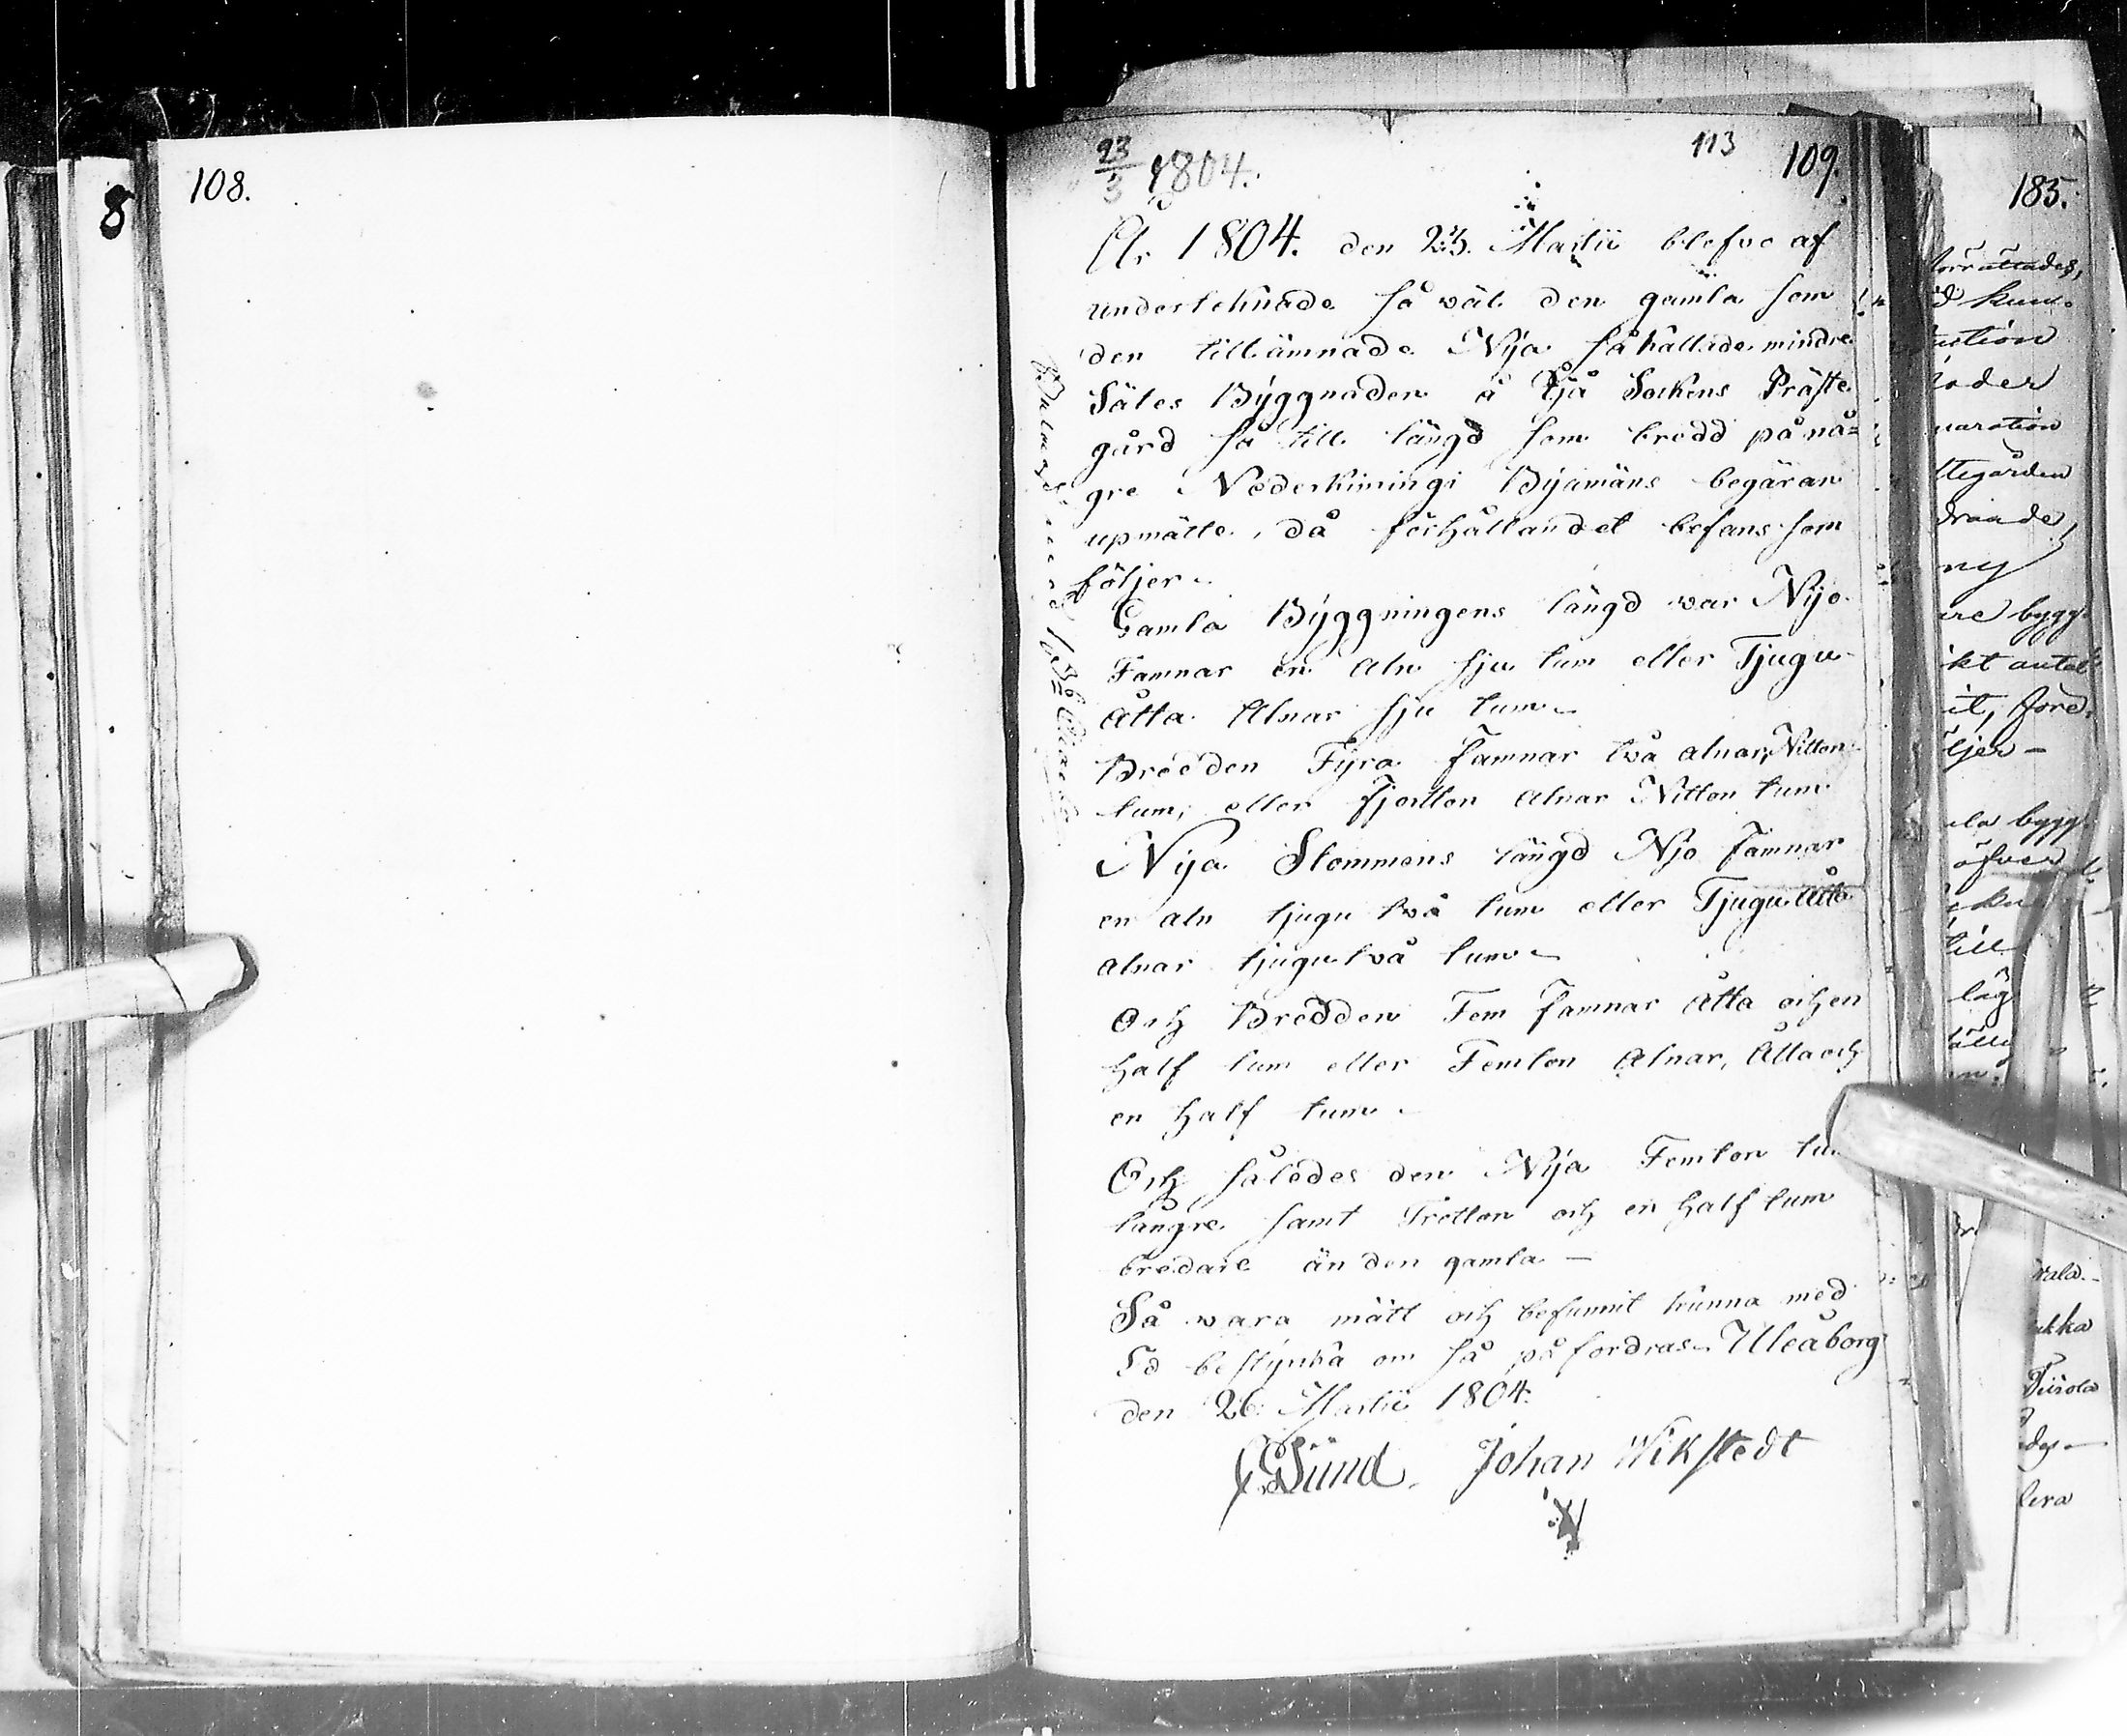 8
108.
23/3 1804.
113
109.
År 1804. den 23. Martii blefvo af
underteknade så väl den gamla som
den tillämnade Nya så kallade mindre
Sätes Byggnaden å Ijå Sockens Präste
gård så till längd som bredd på nå=
gre Nederkimingi Byamäns begäran
upmätte, då förhållandet befans som
följer.
Gamla Byggningens längd var Nijo
Famnar en Aln sju tum eller Tjugu
Åtta Alnar sju tum.
Bredden Fyra famnar två alnar, Nitton
tum, eller fjorton Alnar Nitton tum
Nya Stommens längd Njo famnar
en aln tjugu två tum eller Tjugu Åtta
alnar tjugu två tum.
Och Bredden Fem famnar Åtta och en
half tum eller Femton Alnar, Åtta och
en half tum.
Och således den Nya Femton
längre samt Tretton och en half tum
bredare än den gamla —
Så vara mätt och befunnit kunna med
Ed bestyrka om så påfordras. Uleåborg
den 26. Martii 1804.
Sund. Johan Wikstedt
185.
förrättades,
ny
bygg
öfver
till